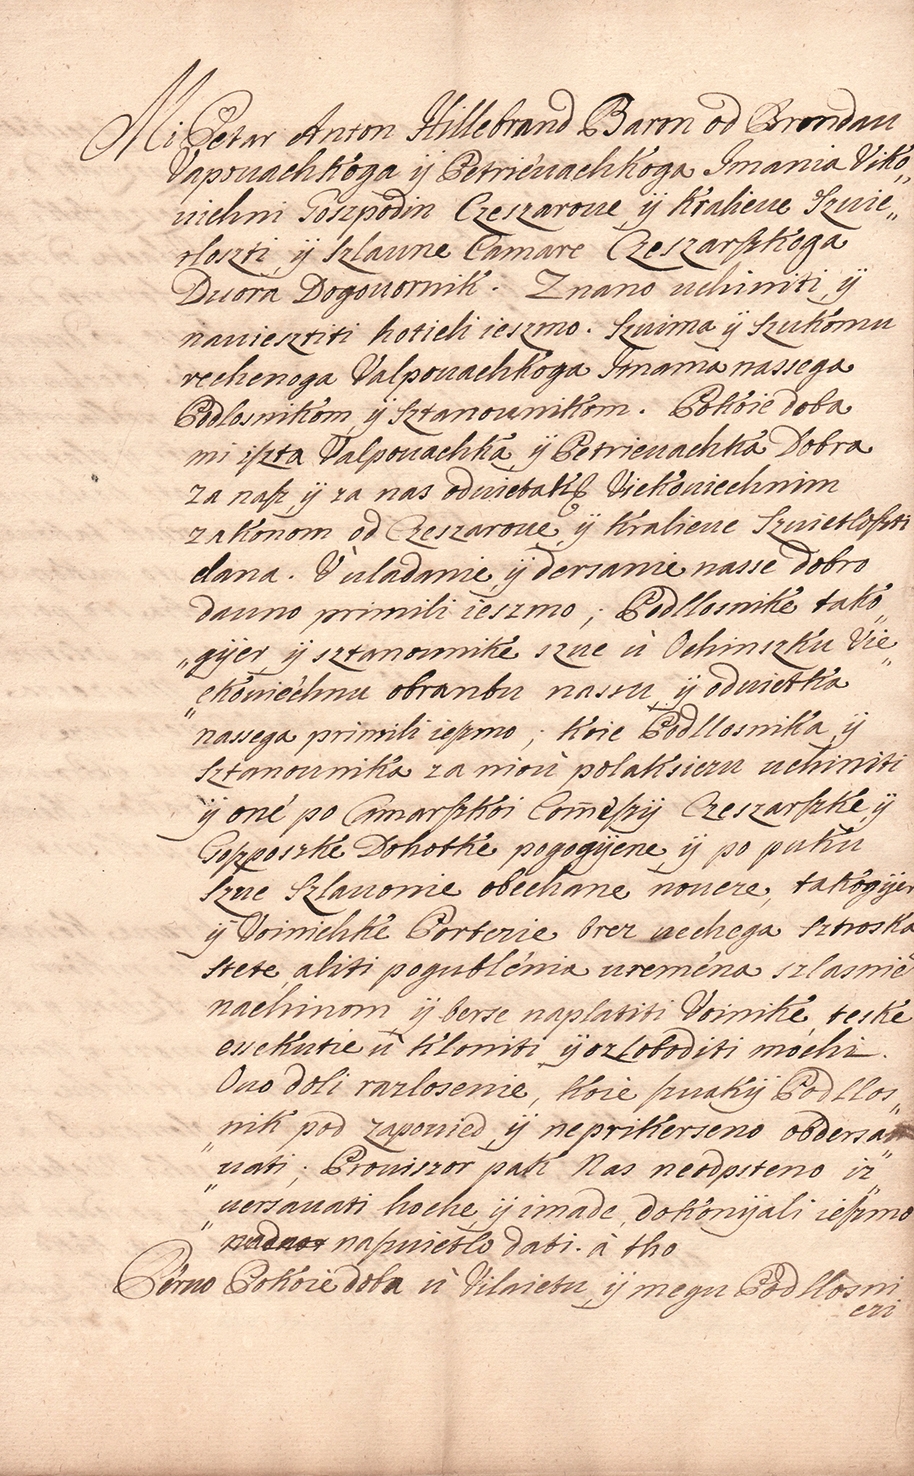 Mi Petar Anton Hillebrand Baron od Brondau
Vapouachkoga ÿ Petrieuachkoga Imania Viko„
uichni Goszpodin Czeszaroue ÿ Kralieue Szuie„
tloszti, ÿ szlaune Camare Czeszarszkoga
Duora Dogouornik. Znano uchiniti, ÿ
nauiesztiti hotieli ieszmo. Szuima ÿ Szukomu
rechenoga Valpouachkoga Imania nassega
Podlosnikom, ÿ Sztanounikom. Pokoie doba
mi iszta Valpouachka, ÿ Petrieuachka Dobra
za nasz, ÿ za nas oduietak Viekouiechnim
zakonom od Czeszaroue, ÿ Kralieue Szuietloszti
dana. Ù uladanie, ÿ dersanie nasse dobro
dauno primili ieszmo; Podllosnike tako„
„gÿer, ÿ sztanounike szue ù Ochinszku Vie„
„ekouiéchnu obranbu nassu, ÿ oduietka
„nassega primili ieszmo; koie Podllosnika, ÿ
sztanounika za niou polaksicu uchiniti
ÿ oné po Camarszkoi Comeszÿ Czeszarszke, ÿ
Goszposzke Dohotke pogogÿene, ÿ po puku
szue Szlauonie obechane noucze, takogÿer
ÿ Voinichke Portzie brez uechega sztroska
stete, aliti pogublénia uremena szlasnié
nachinom ÿ berse naplatiti Voinike, teske
essekutie ù kloniti, ÿ oszloboditi mochi.
Ouo doli razlosenie, koie szuakÿ Podllos„
„nik pod zapouied, ÿ neprikerseno obdersa„
„uati; Prouiszor pak Nas neodpsteno iz„
„uersauati hoche, ÿ imade, dokonÿali ieszmo
naszuietlo dati. à tho
Péruo Pokoie doba ù Vilaietu, ÿ megu Podllosni
czi